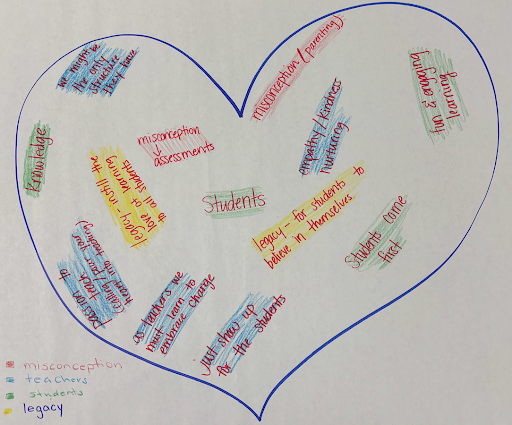 we might be
the only
structure
they have
misconception (parenting)
fun & engaging
learning
empathy/kindness
nurturing
Knowledge
misconception
assessments
legacy - instill the
love of learning
to all students
Students
legacy - for students to
believe in themselves
Students come
first
passion to
teach
(calling/pour your
heart into teaching)
as teachers we
must learn to
embrace change
Just show up
for the students
misconception
teachers
students
legacy